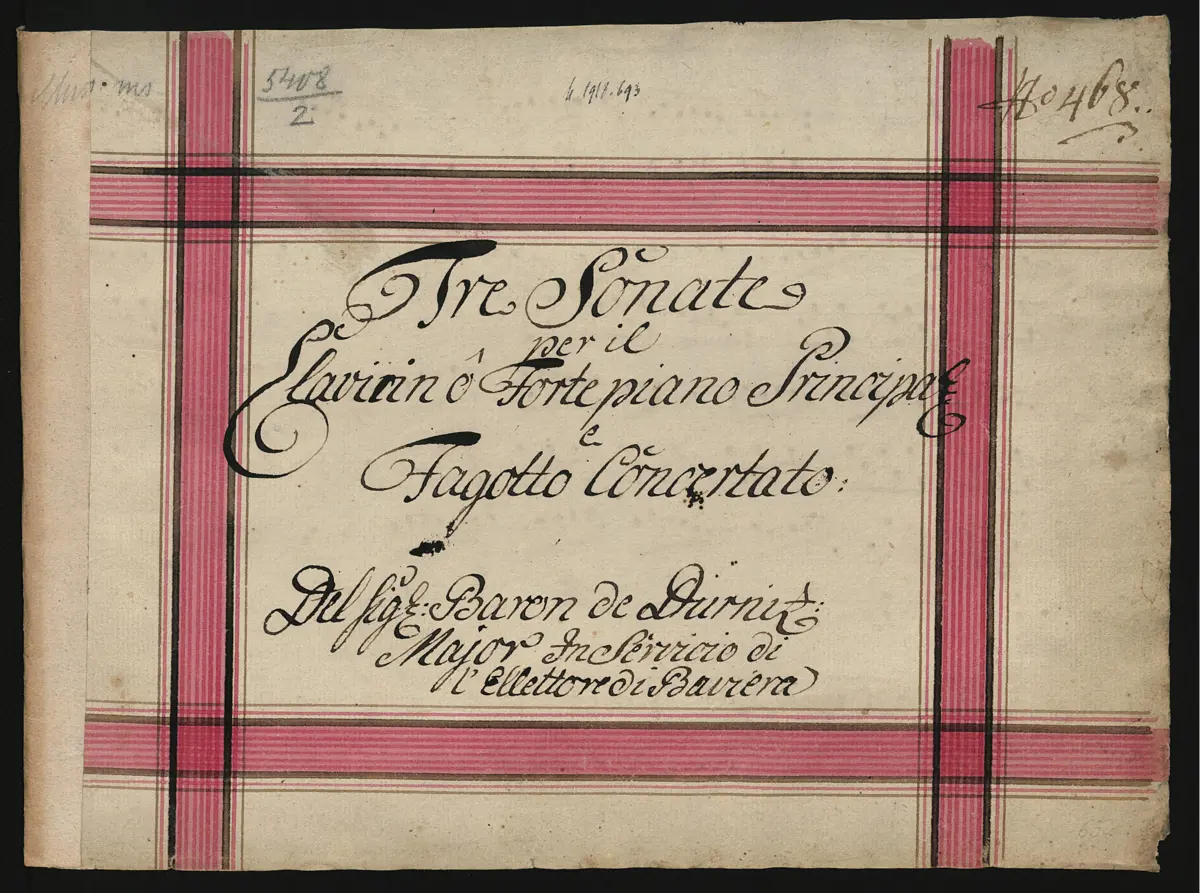 Mus. ms
5408
2
No 468.
Tre Sonate
per il
Clavicin ô Fortepiano Principale
e
Fagotto Concertato:
Del sigr: Baron de Dürniz:
Major In Servicio di
l'Ellettore di Baviera